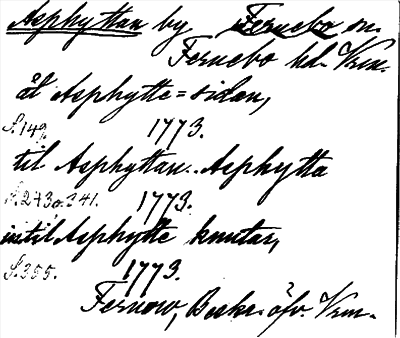 Asphyttan by Fernebo sn.
Fernebo hd. Vrm.
åt Asphytte=sidan,
S. 149. 1773.
til Asphyttan. Asphytta
S. 273 o. 341. 1773.
intil Asphytte knutar,
S. 355. 1773.
Fernow, Beskr. öfv. Vrm.